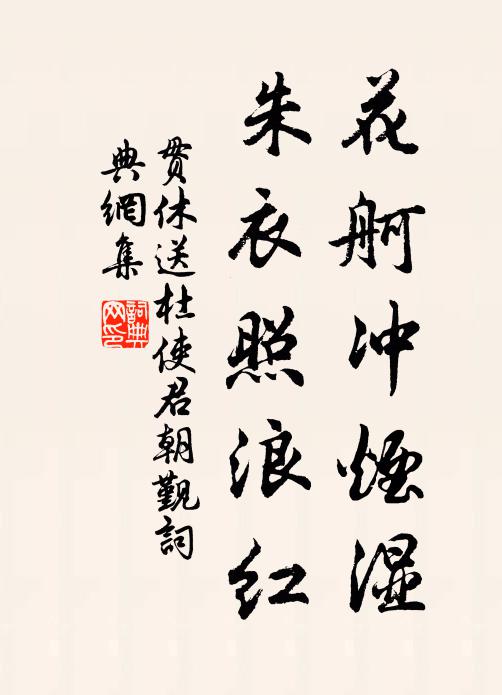 花舸冲煙湿
朱衣照浪红
贯休送杜使君朝觐詞
典網集
詞典網印